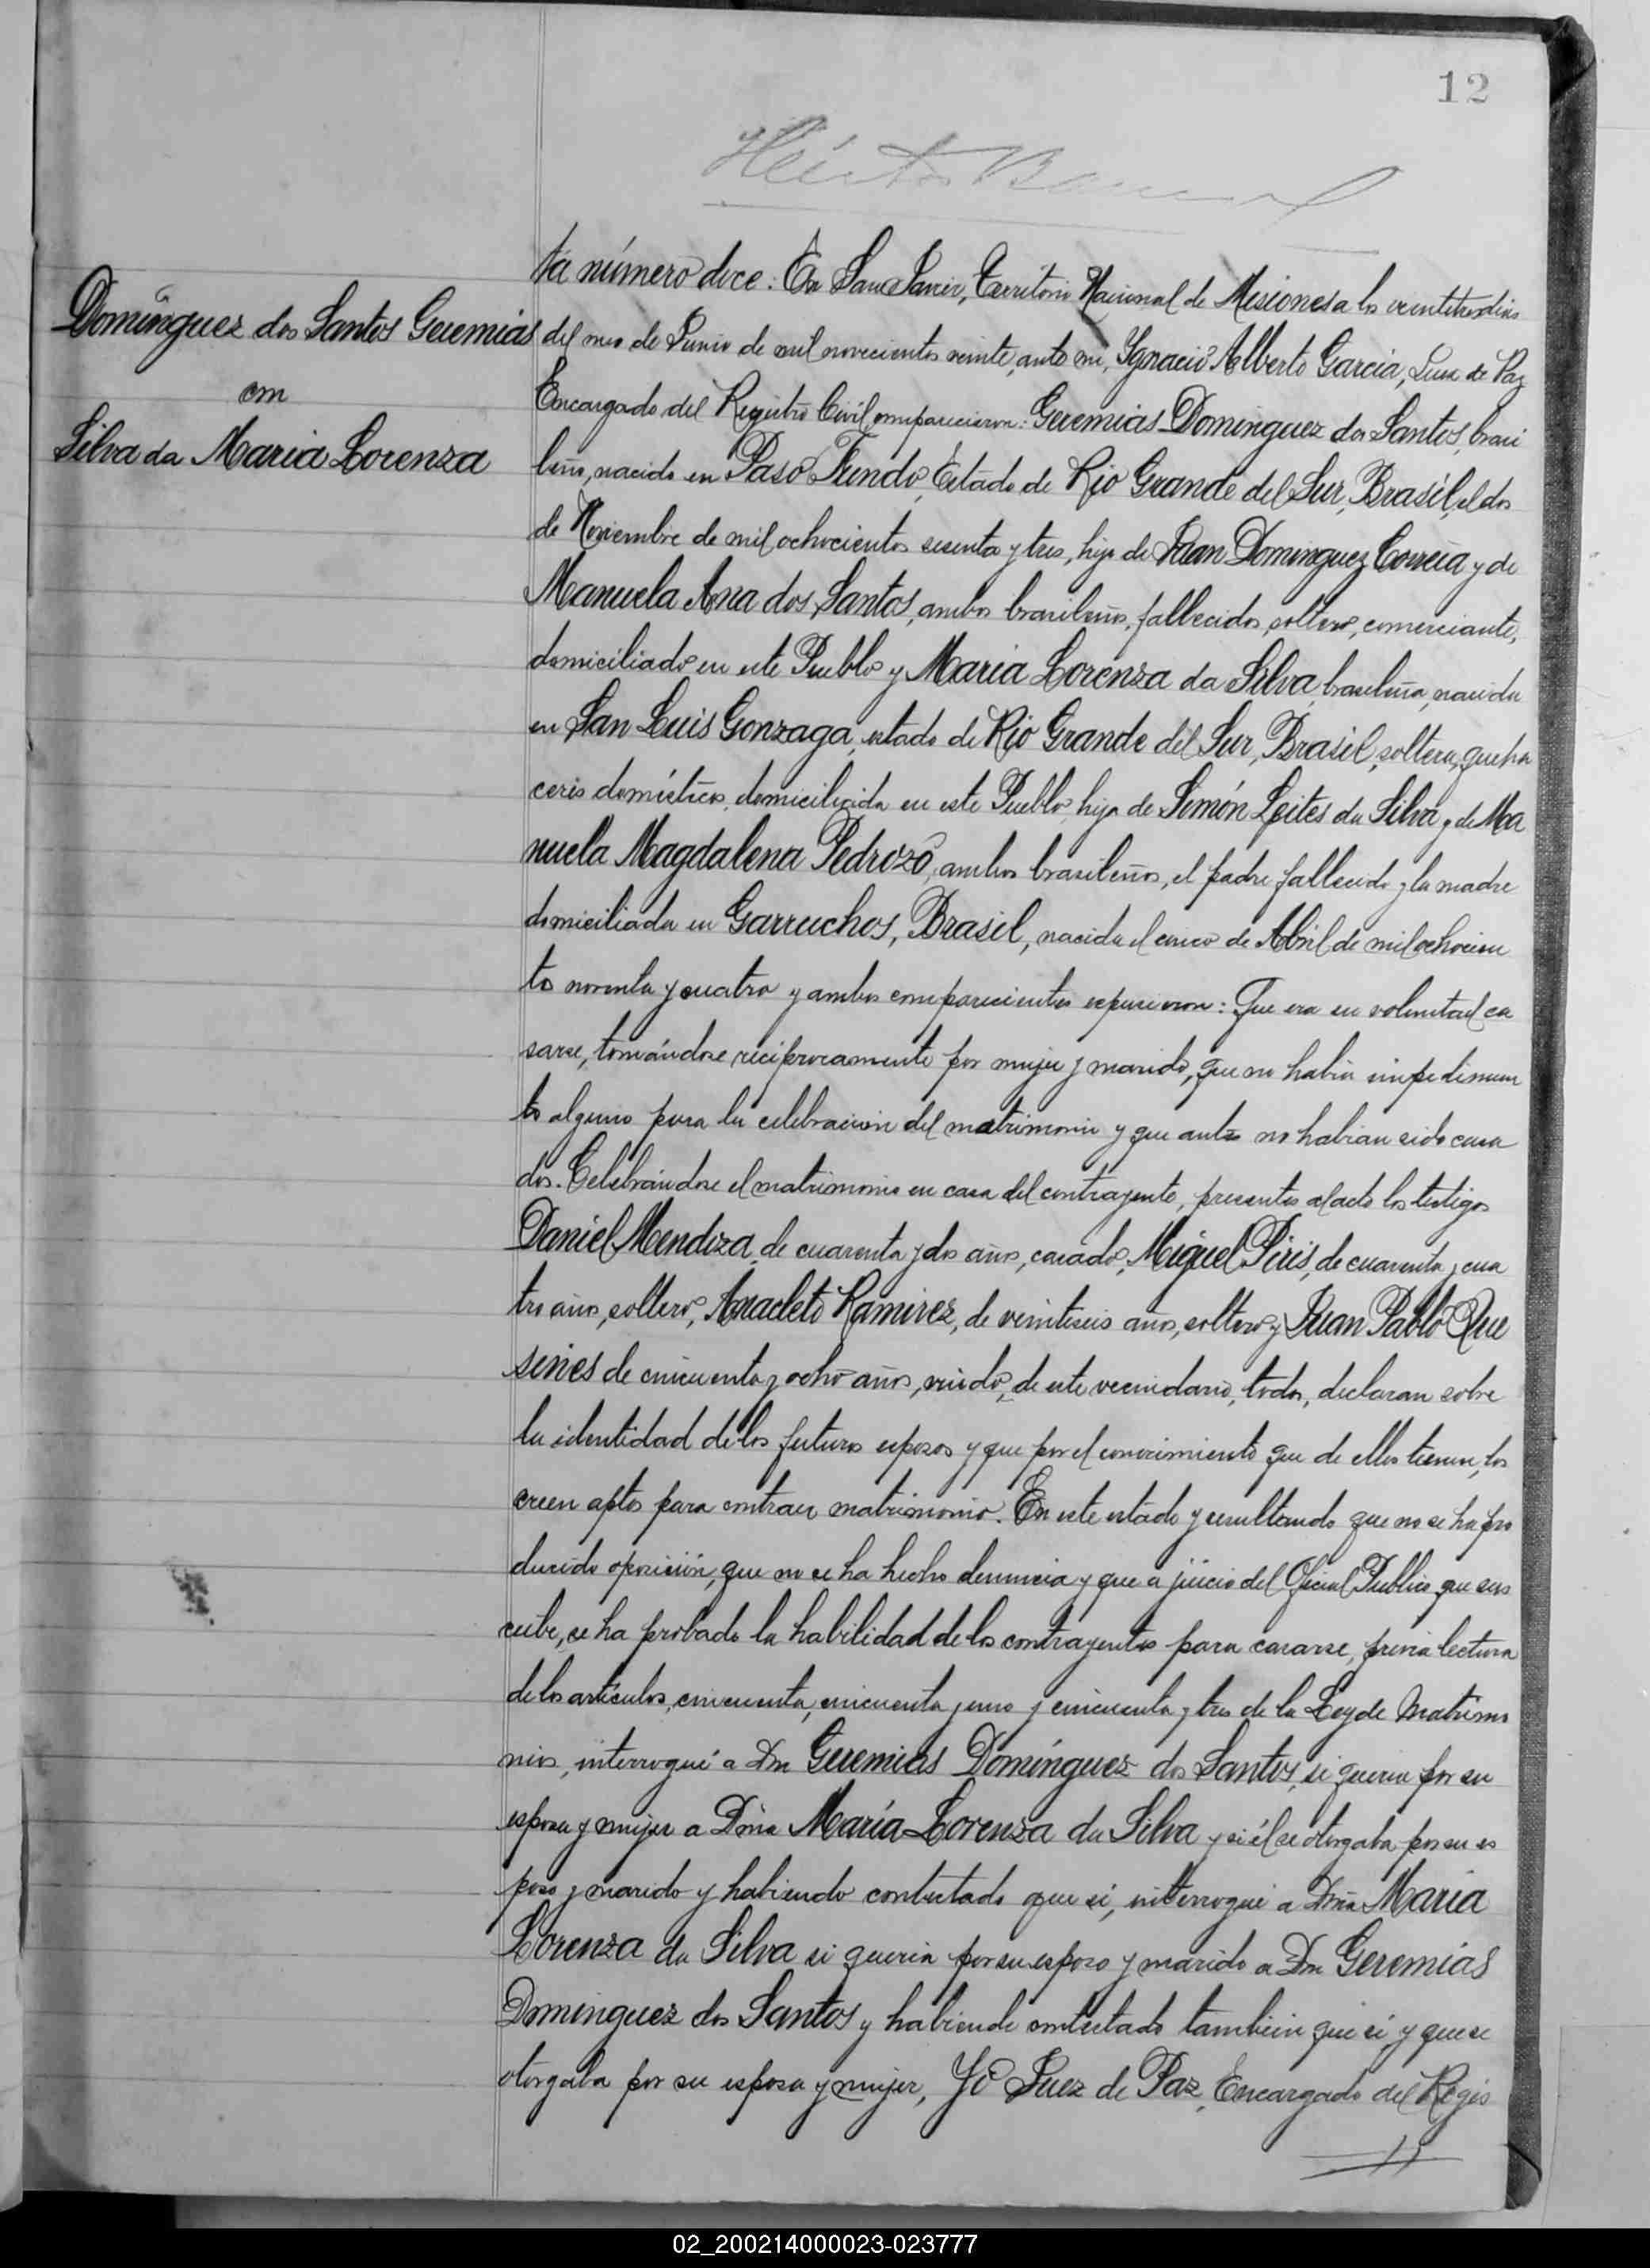 12
Héctor
Domínguez dos Santos Geremías
con
Silva da Maria Lorenza
ta número doce: En San Javier, Territorio Nacional de Misiones a los veintitres dias
del mes de Junio de mil novecientos veinte, ante mi, Ygnacio Alberto Garcia, Juez de Paz
Encargado del Registro Civil comparecieron: Geremias Dominguez dos Santos, brasi
leño, nacido en Paso Fundo, Estado de Rio Grande del Sur, Brasil, el dos
de Noviembre de mil ochocientos sesenta y tres, hijo de Juan Dominguez Correia y de
Manuela Ana dos Santos, ambos brasileños, fallecidos, soltero, comerciante,
domiciliado en este Pueblo y Maria Lorenza da Silva, brasileña, nacida
en San Luis Gonzaga, estado de Rio Grande del Sur, Brasil, soltera, queha
ceres domésticos, domiciliada en este Pueblo, hija de Simón Leites da Silva y de Ma
nuela Magdalena Pedrozo, ambos brasileños, el padre fallecido y la madre
domiciliada en Garruchos, Brasil, nacida el cinco de Abril de mil ochocien
tos noventa y cuatro y ambos comparecientes expusieron: Que era su voluntad ca
sarse, tomándose reciprocamente por mujer y marido, que no habia impedimen
to alguno para la celebración del matrimonio y que antes no habian sido casa
dos. Celebrándose el matrimonio en casa del contrayente, presentes al acto los testigos
Daniel Mendoza, de cuarenta y dos años, casado, Miguel Piris, de cuarenta y cua
tro años, soltero, Anacleto Ramirez, de veintiseis años, soltero y Juan Pablo Que
sines de cincuenta y ocho años, viudo, de este vecindario, todos, declaran sobre
la identidad de los futuros esposos y que por el conocimiento que de ellos tienen, los
creen aptos para contraer matrimonio. En este estado y resultando que no se ha pro
ducido oposición, que no se ha hecho denuncia y que a juicio del Oficial Publico que sus
cribe, se ha probado la habilidad de los contrayentes para casarse, previa lectura
de los artículos, cincuenta, cincuenta y uno y cincuenta y tres de la Ley de Matrimo
nios, interrogué a Dn Geremias Domínguez dos Santos, si queria por su
esposa y mujer a Dña María Lorenza da Silva y si él se otorgaba por su es
poso y marido y habiendo contestado que si, interrogué a Dña Maria
Lorenza da Silva si queria por su esposo y marido a Dn Geremias
Dominguez dos Santos y habiendo contestado tambien que si y que se
otorgaba por su esposa y mujer, Yo Juez de Paz, Encargado del Regis
02_200214000023-023777